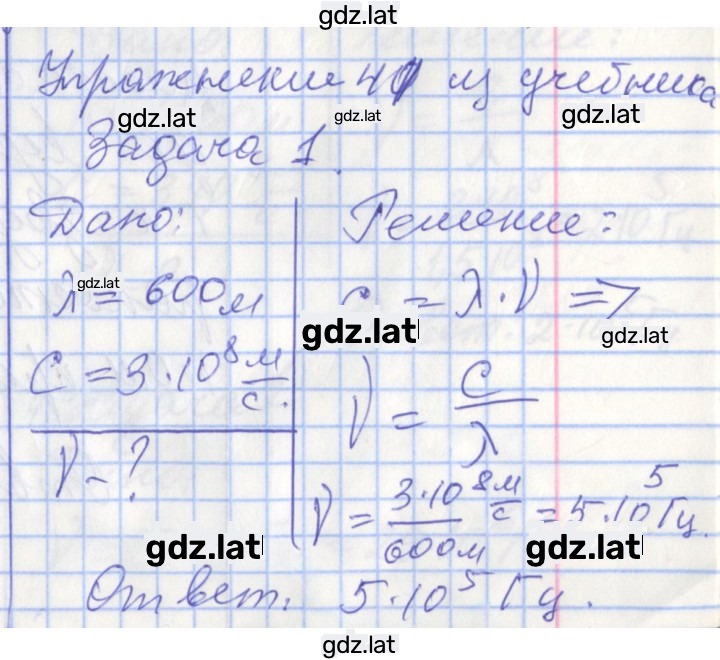 gdz.lat
Упражнение 41 из учебника
gdz.lat gdz.lat gdz.lat
Задача 1.
Дано:
gdz.lat
λ = 600м
C = 3·10⁸ м/с.
ν - ?
Решение:
c = λ·ν =>
gdz.lat gdz.lat
ν = C/λ
ν = 3·10⁸ м/с / 600м = 5·10⁵ Гц.
gdz.lat gdz.lat
Ответ: 5·10⁵ Гц.
gdz.lat